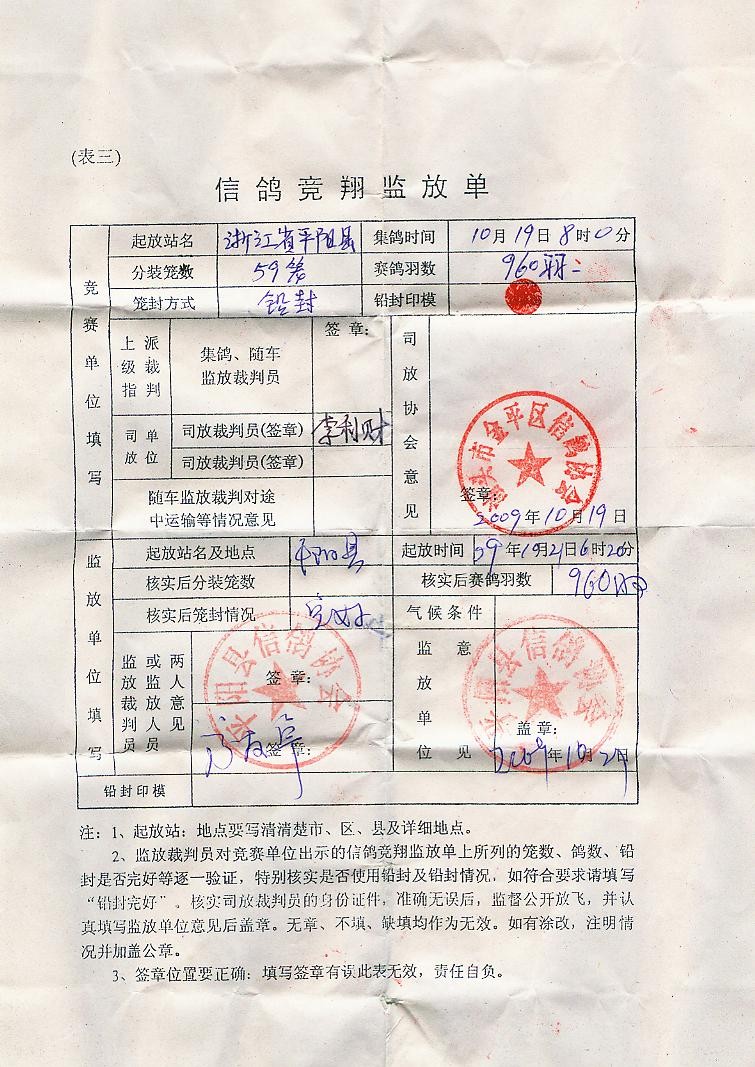 (表三)
信鸽竞翔监放单
竞赛单位填写
起放站名 浙江省平阳县 集鸽时间 10月19日8时0分
分装笼数 59笼 赛鸽羽数 960羽
笼封方式 铅封 铅封印模
上级指派裁判 集鸽、随车监放裁判员 签章:
司放单位 司放裁判员(签章) 李利财
司放裁判员(签章)
随车监放裁判对途中运输等情况意见
司放协会意见
汕头市金平区信鸽协会
签章:
2009年10月19日
监放单位填写
起放站名及地点 平阳县 起放时间 09年10月21日6时20分
核实后分装笼数 核实后赛鸽羽数 960羽
核实后笼封情况 完好 气候条件
监放裁判员或监放人员两人意见 签章:
签章:
平阳县信鸽协会
监放单位意见
平阳县信鸽协会
盖章:
2009年10月21日
铅封印模
注：1、起放站：地点要写清清楚市、区、县及详细地点。
2、监放裁判员对竞赛单位出示的信鸽竞翔监放单上所列的笼数、鸽数、铅
封是否完好等逐一验证，特别核实是否使用铅封及铅封情况，如符合要求请填写
“铅封完好”。核实司放裁判员的身份证件，准确无误后，监督公开放飞，并认
真填写监放单位意见后盖章。无章、不填、缺填均作为无效。如有涂改，注明情
况并加盖公章。
3、签章位置要正确：填写签章有误此表无效，责任自负。